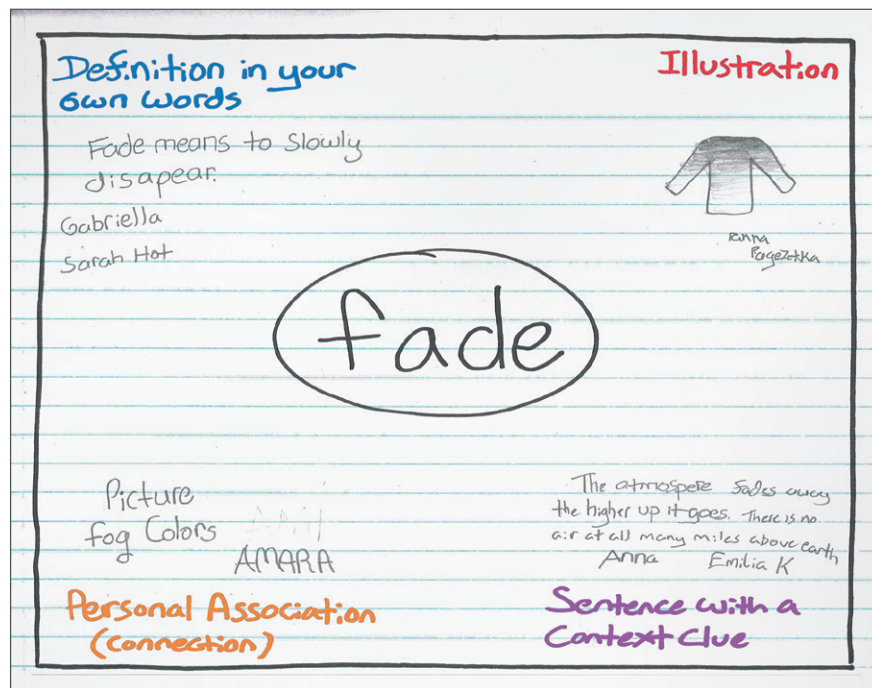 Definition in your
own words
Fade means to slowly
disapear.
Gabriella
Sarah Hot
Illustration
fade
Picture
fog Colors
AMARA
Personal Association
(connection)
The atmospere fades away
the higher up it goes. There is no
air at all many miles above earth
Anna Emilia K
Sentence with a
Context Clue